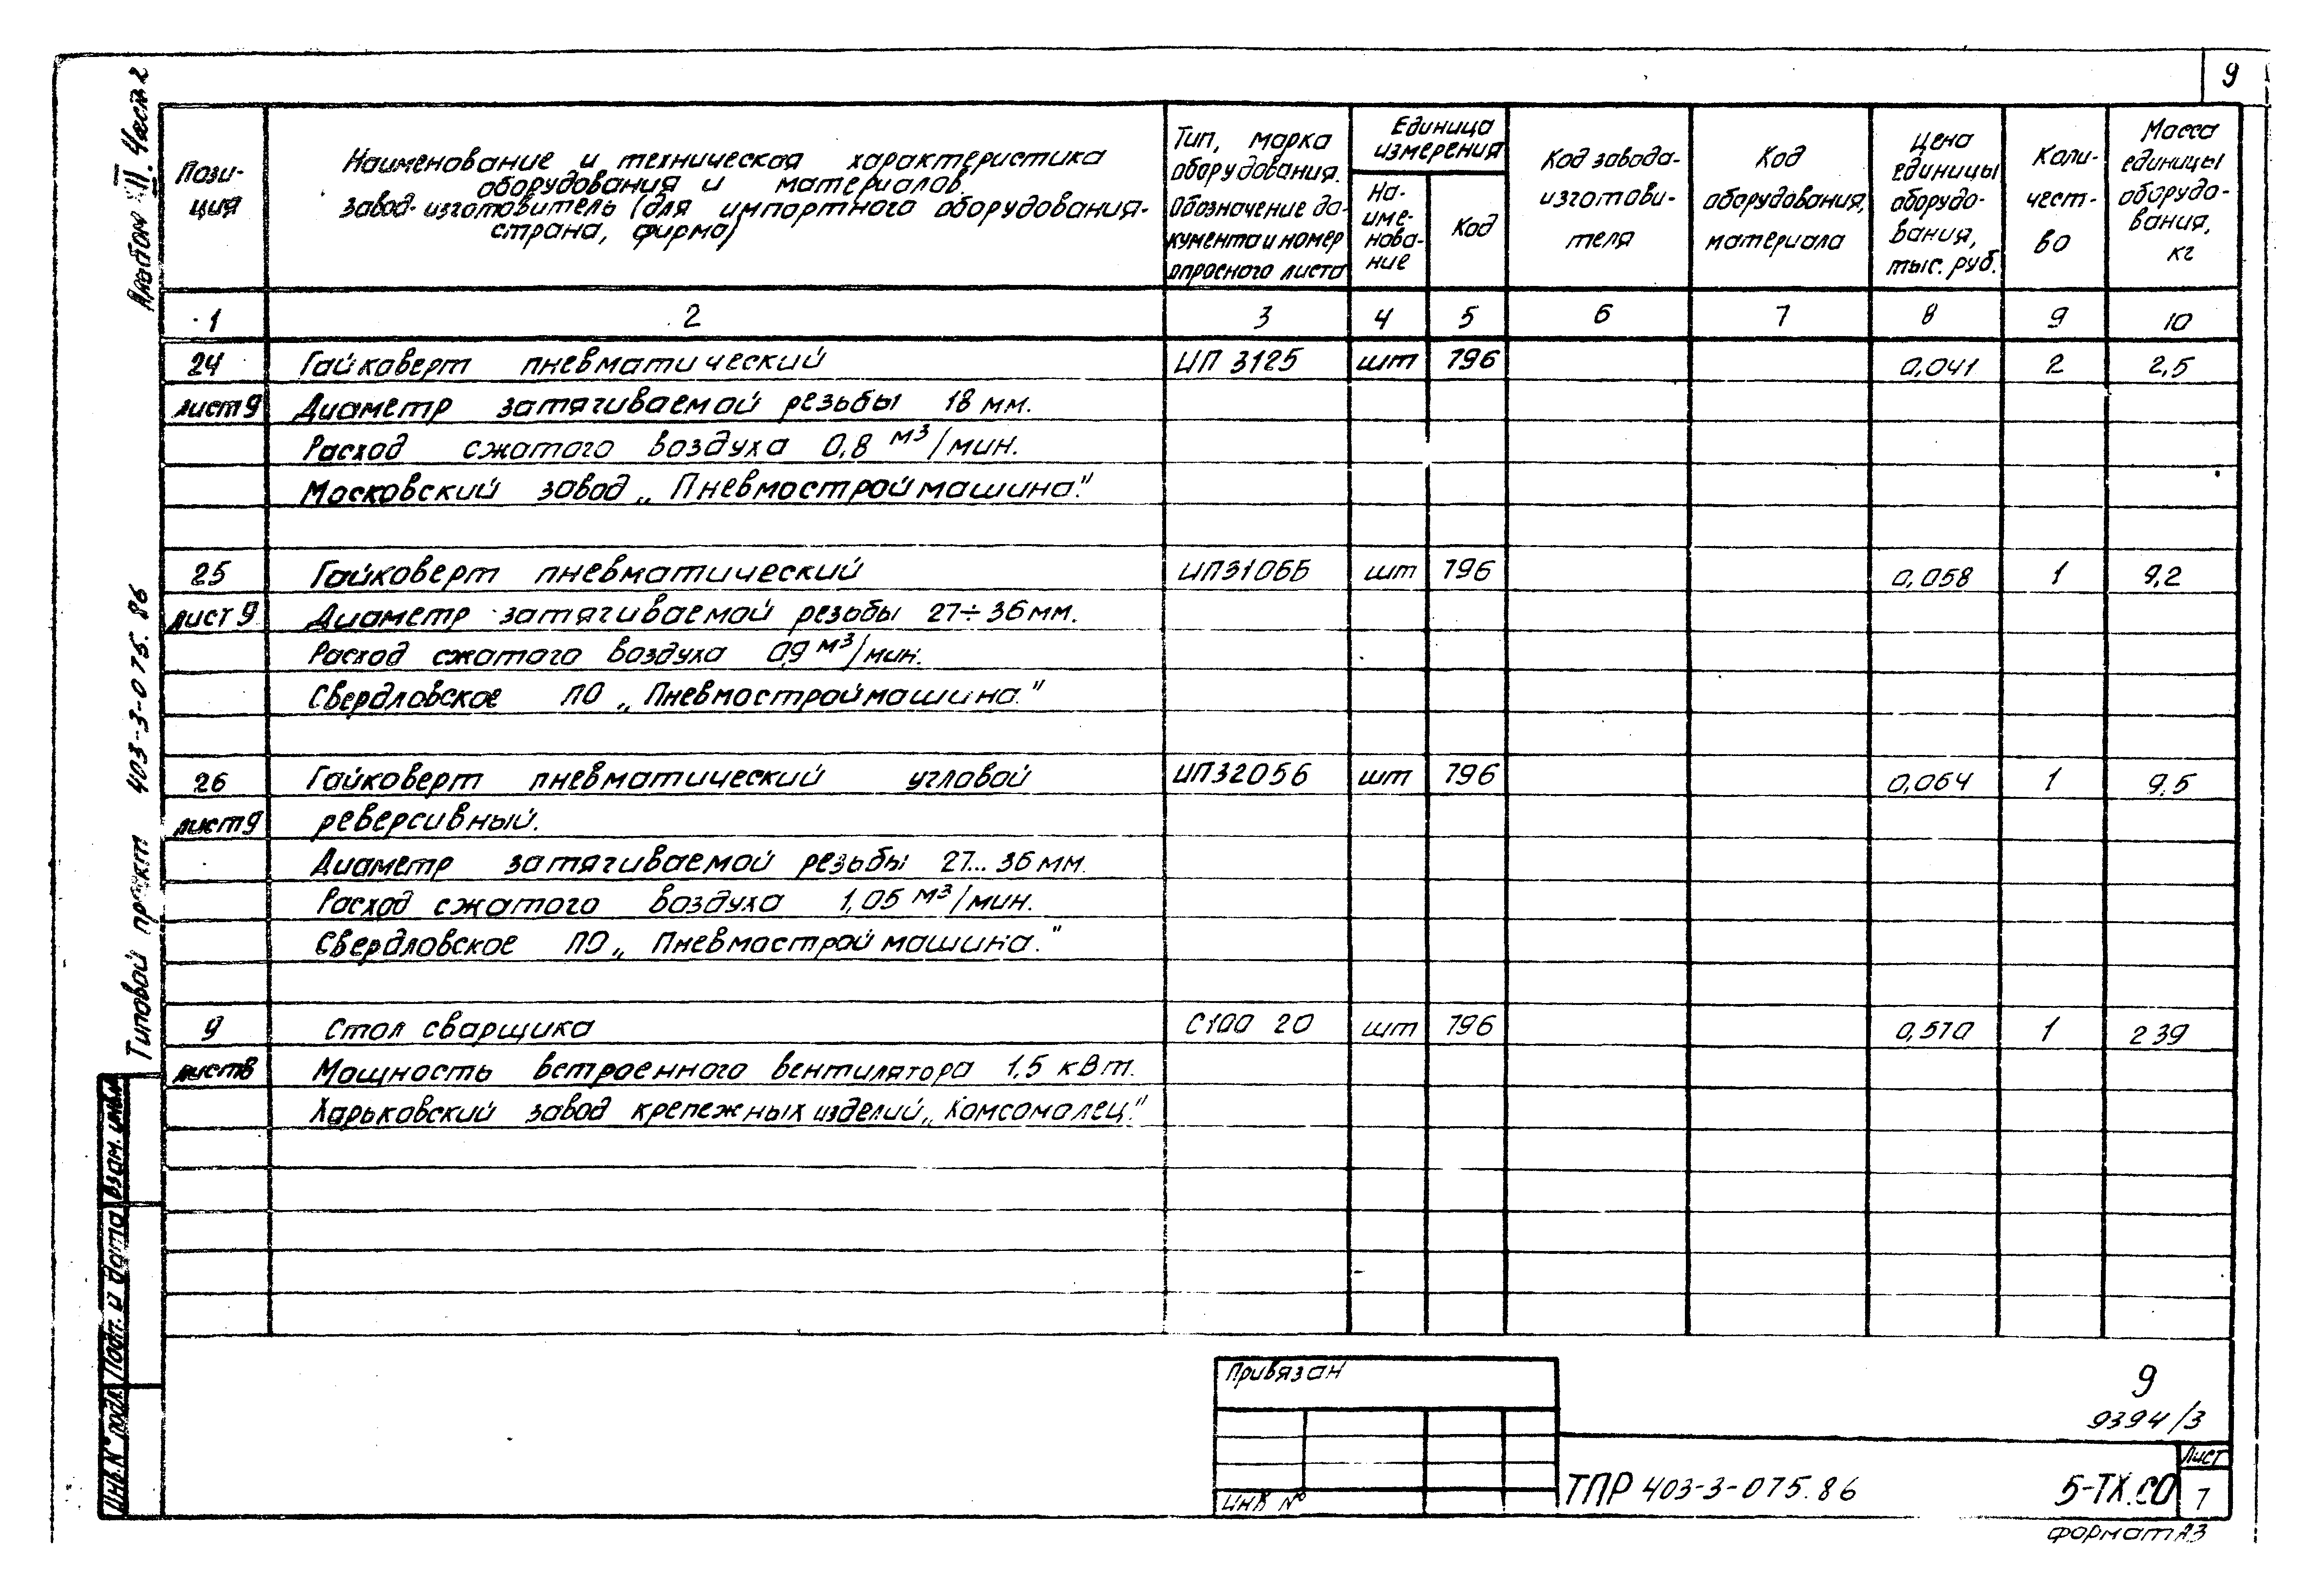 9
Альбом II. Часть 2
Типовой проект 403-3-075.86
Взам. инв.№
Подп. и дата
Инв.№ подл.
Пози-
ция
Наименование и техническая характеристика
оборудования и материалов.
завод-изготовитель (для импортного оборудования-
страна, фирма)
Тип, марка
оборудования.
Обозначение до-
кумента и номер
опросного листа
Единица
измерения
На-
име-
нова-
ние
Код
Код завода-
изготови-
теля
Код
оборудования,
материала
Цена
единицы
оборудо-
вания,
тыс. руб.
Коли-
чест-
во
Масса
единицы
оборудо-
вания,
кг
1 2 3 4 5 6 7 8 9 10
24 Гайковерт пневматический ИП 3125 шт 796 0,041 2 2,5
лист 9 Диаметр затягиваемой резьбы 18 мм.
Расход сжатого воздуха 0,8 м³/мин.
Московский завод „Пневмостроймашина."
25 Гайковерт пневматический ИП3106Б шт 796 0,058 1 9,2
лист 9 Диаметр затягиваемой резьбы 27÷36 мм.
Расход сжатого воздуха 0,9 м³/мин.
Свердловское ПО „Пневмостроймашина."
26 Гайковерт пневматический угловой ИП3205б шт 796 0,064 1 9,5
лист 9 реверсивный.
Диаметр затягиваемой резьбы 27...36 мм.
Расход сжатого воздуха 1,05 м³/мин.
Свердловское ПО „Пневмостроймашина."
9 Стол сварщика С100 20 шт 796 0,510 1 239
лист 8 Мощность встроенного вентилятора 1,5 кВт.
Харьковский завод крепежных изделий „Комсомолец."
Привязан
Инв №
9
9394/3
ТПР 403-3-075.86 5-ТХ.СО
Лист
7
формат А3